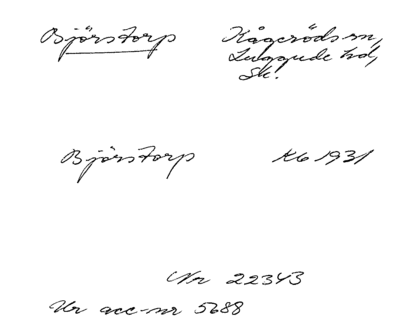 Björstorp Kågeröds sn,
Luggude hd,
Sk.
Björstorp KG 1931
Nr 22343
Ur acc-nr 5688